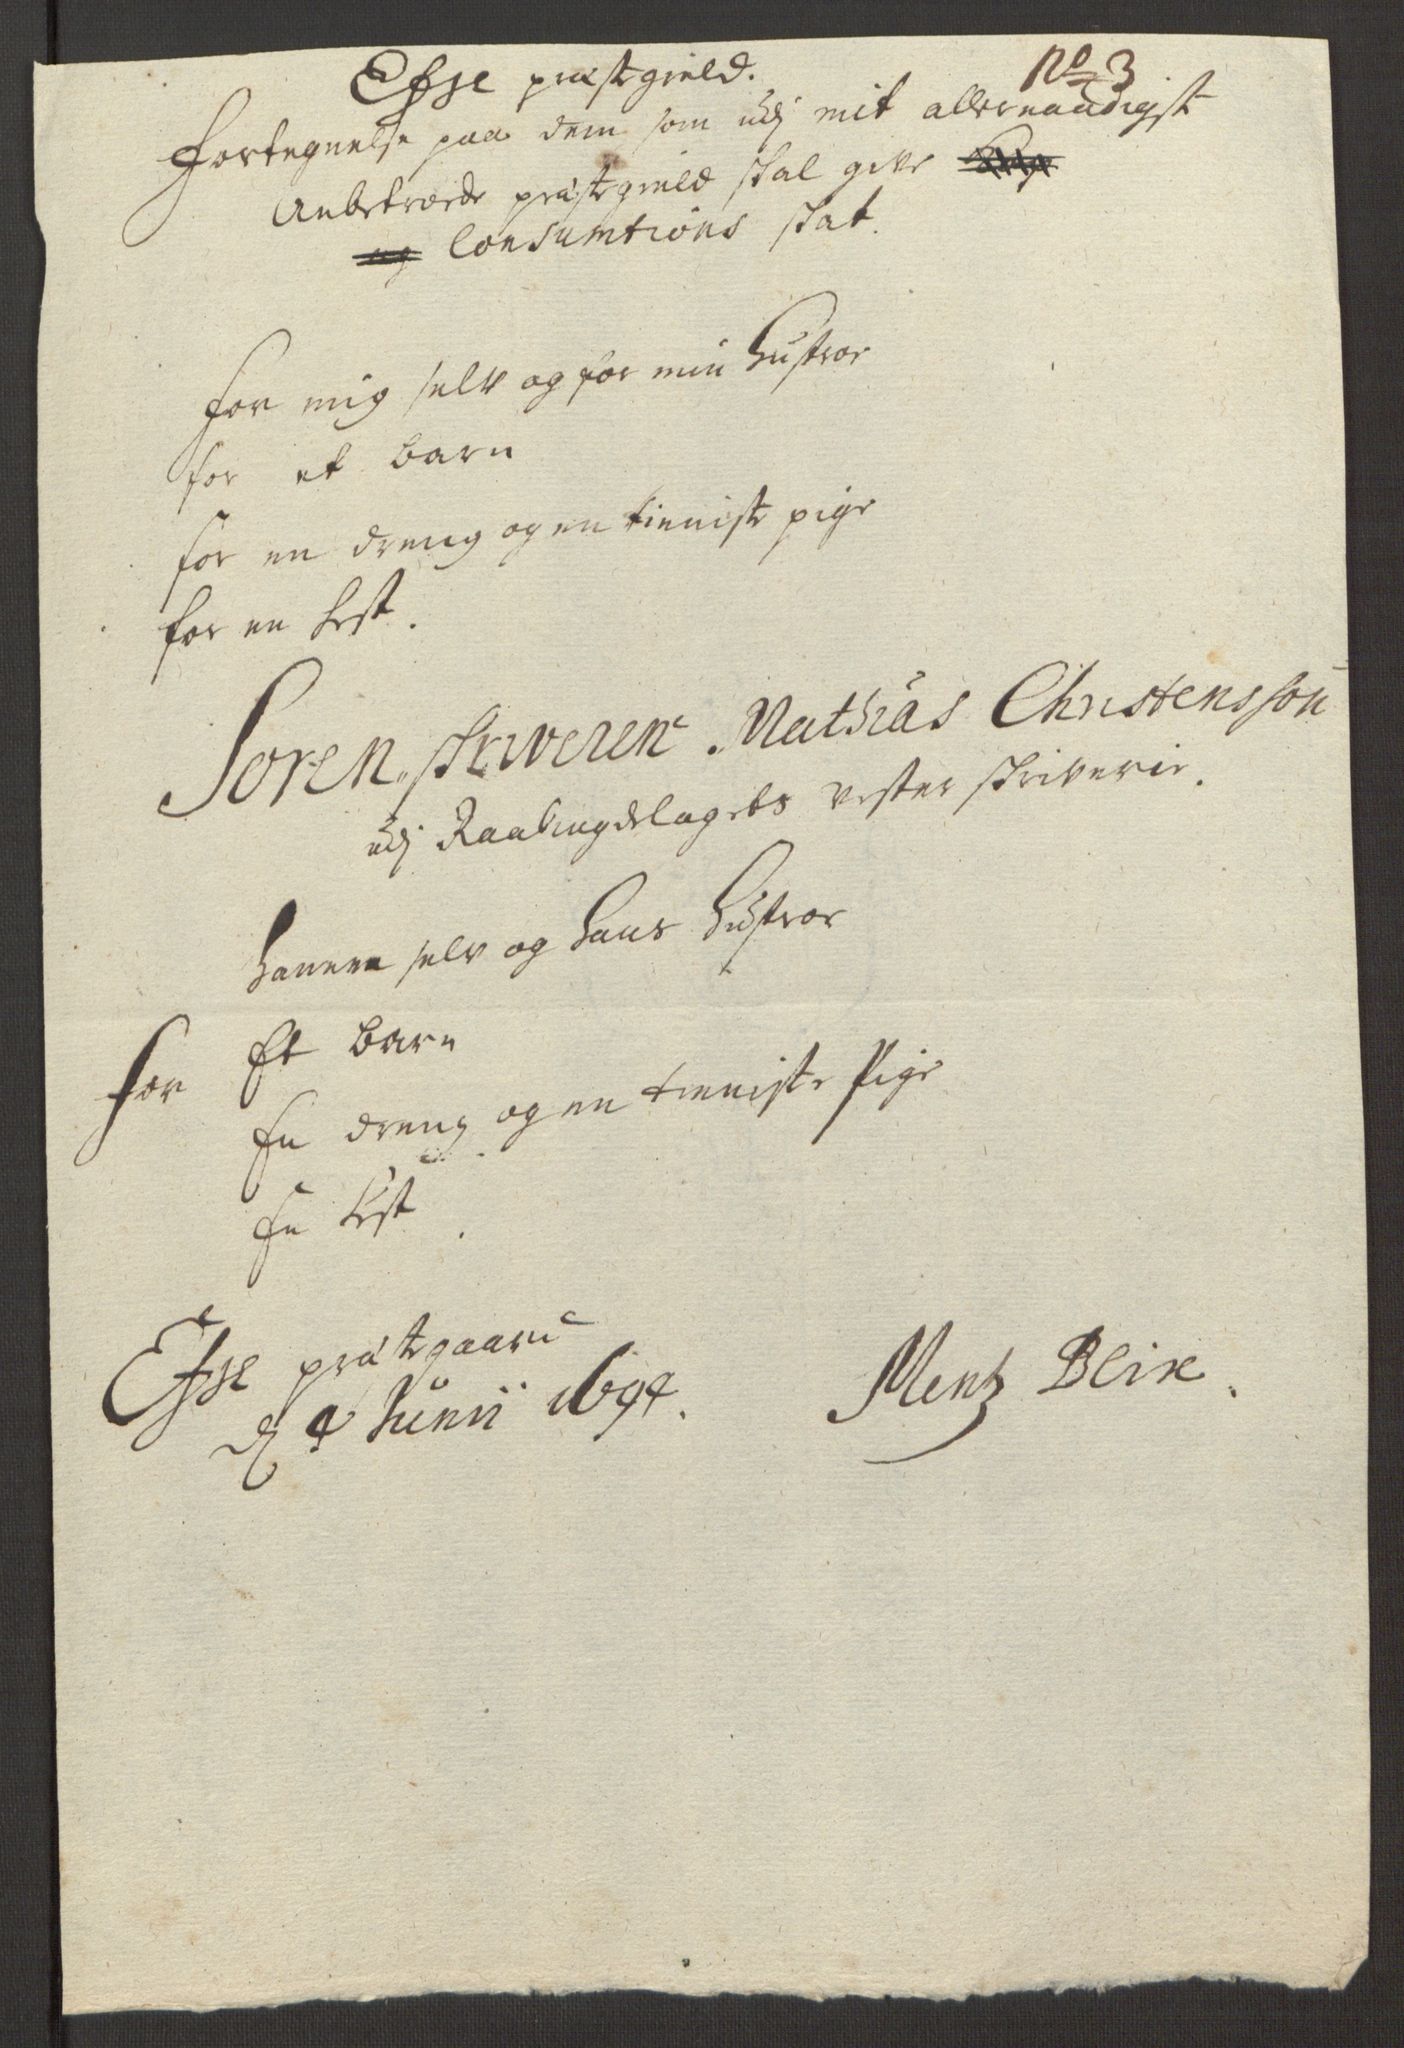 Efsie præstegield.
No 3
Fortegnelse paa dem som udj mit allernaadigst
Anbetroede præstegield skal give
og Consumtions skat.
For mig selv og for min Hustroe
for et barn
for en dreng og en tieniste pige
for en hest.
Soren-skriveren Mathias Christensson
udj Raabÿgdelagets vester skriverie.
hannem selv og hans Hustroe
For Et barn
En dreng og en tieniste Pige
En hest
præstegaard
d 4 Junii 1694.
Mentz Blix.